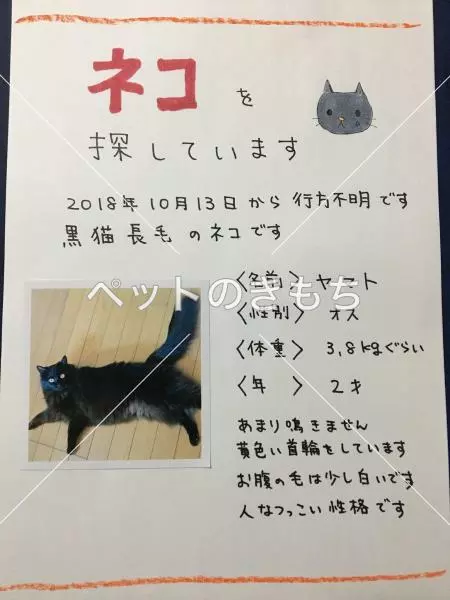 ネコを
探しています
2018年10月13日から行方不明です
黒猫長毛のネコです
ペットのきもち
〈名前〉 ヤマト
〈性別〉 オス
〈体重〉 3.8kgぐらい
〈年　〉 2才
あまり鳴きません
黄色い首輪をしています
お腹の毛は少し白いです
人なつっこい性格です